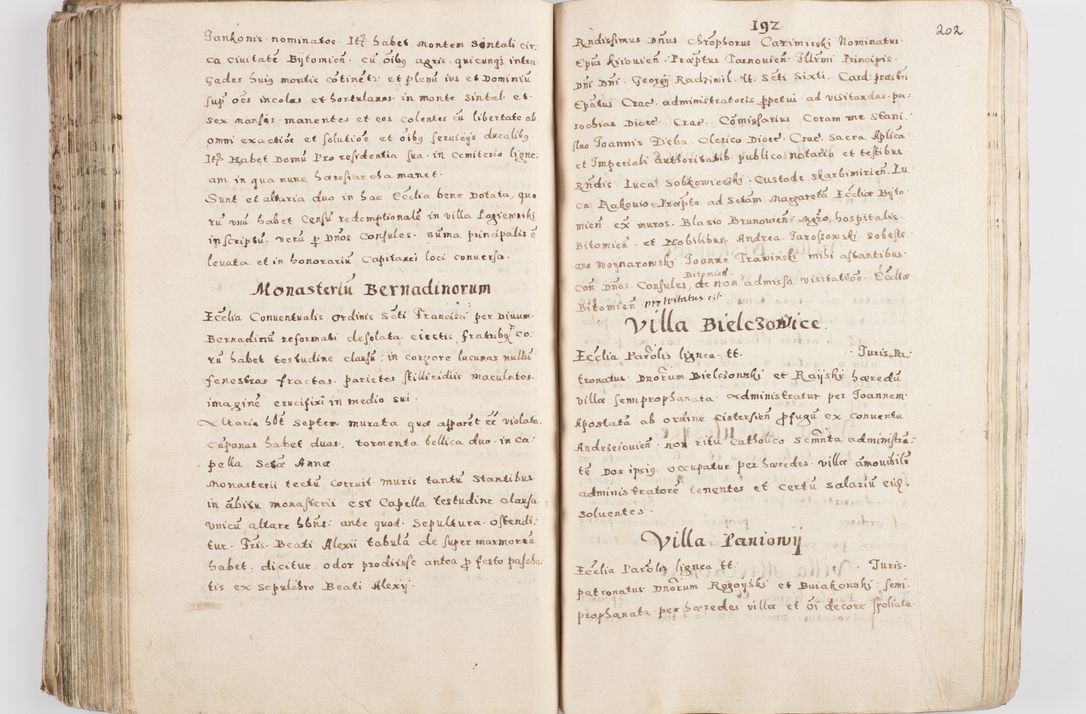 Jankonis nominatae. Itē habet montem Sintali cir,
ca ciuitatē Bytomien̄. cū oībꝰ agris. quicunqꝫ intra
gades huiꝰ montis cōtinētr. et plenū ius et Dominiū
sup oēs incolas et hortulanos. in monte Sintal. et
sex mansos manentes et eos colentes cū libertate ab
omni exactiōe et solutiōe et oībꝰ seruitijs ducalibꝰ
Itē Habet Domū Pro residentia sua. in Cemiterio ligne;
am in qua nunc haeresiarcha manet.
Sunt et altaria duo in hac Ecclīa bene Dotata, quo,
rū vnū habet Censū redemptionalē in villa Lagiewniki
inscriptū. verū ꝑ Dn̄os Consules. sūma principalis ē
leuata et in honorariū Capitanei loci conuersa.
Monasteriū Bernadinorum
Ecclīa Conuentualis ordinis Scti Francisci per Diuum
Bernadinū reformati desolata eiectis fratribꝰ Co,
rū habet testudine clausū: in corpore lucunar nullū
fenestras fractas. parietes stillicidiis maculatos.
imaginē crucifixi in medio sui
Altaria hb̄t septem murata quae apparēt eē violata
Cāpanas habet duas. tormenta bellica duo. in ca,
pella Sctae Annae
Monasterii tectū Corruit. muris tantū stantibus
in ābitu monasterii est Capella testudine clausa.
vnicū altare hb̄ns: ante quod. Sepultura. ostendi,
tur. Fris. Beati Alexii tabulā de super marmoreā
habet. dicitur. odor prodiisse antea ꝑ festo pascha,
tis ex sepulchro Beati Alexij.
192
202
Rndissimus Dn̄us Chrōphorus Cazimirski Nominatus
Ep̄us Kiiouien̄. Praep̄tus Tarnouien̄. Illrmi Principis
Dn̄i Dn̄i. Georgij Radziwil. tt. Scti Sixti. Card. praesbri
Ep̄atus Crac. administratoris ꝑpetui. ad visitandas. pa,
rochias Dioec. Crac. Cōmissarius. Coram me Stani,
slao Joannis Zieba. Clerico Dioec. Crac. Sacra Aplica
et Imperiali Authoritatib. publico notario et testibus
Rndis. Luca Sobkowieczki. Custode Skarbimirien̄. Lu,
ca Rakowio. Praepto ad Sctam Margaretā Ecclae Byto,
mien̄ ex muros. Blasio Brunouien̄. Mgro. hospitalis
Bitomien̄. et Nobilibus Andrea Jaroszowski. sobeste,
ano Woynarowski Joanne Trawinski mihi astantibus.
con̄ Dn̄os Consules, Bitomien̄ de non admissa visitatiōe Ecclae
Bitomien̄ protestatus est.
Villa Bielczowice.
Ecclīa Parōlis lignea. tt. Juris Pa,
tronatus. Dnorum Bielczowski et Rayski haeredū
villae semiprophanata. Administratur per Joannem
Apostatā ab ordine Cistersien̄ ꝓfugū ex conuentu
Andrzeiouien̄. non ritu Catholico Scmn̄ta administrā,
tē Dos ipsiꝰ occupatur per haeredes. villae āmouibilē
administratorē tenentes et certū salariū eiꝫ.
soluentes.
Villa Paniowij
Ecclīa Parōlis lignea tt. Juris.
patronatus Dnorum Rogoyski et Buiakowski: semi,
prophanata per haeredes villae et oī decore spoliata